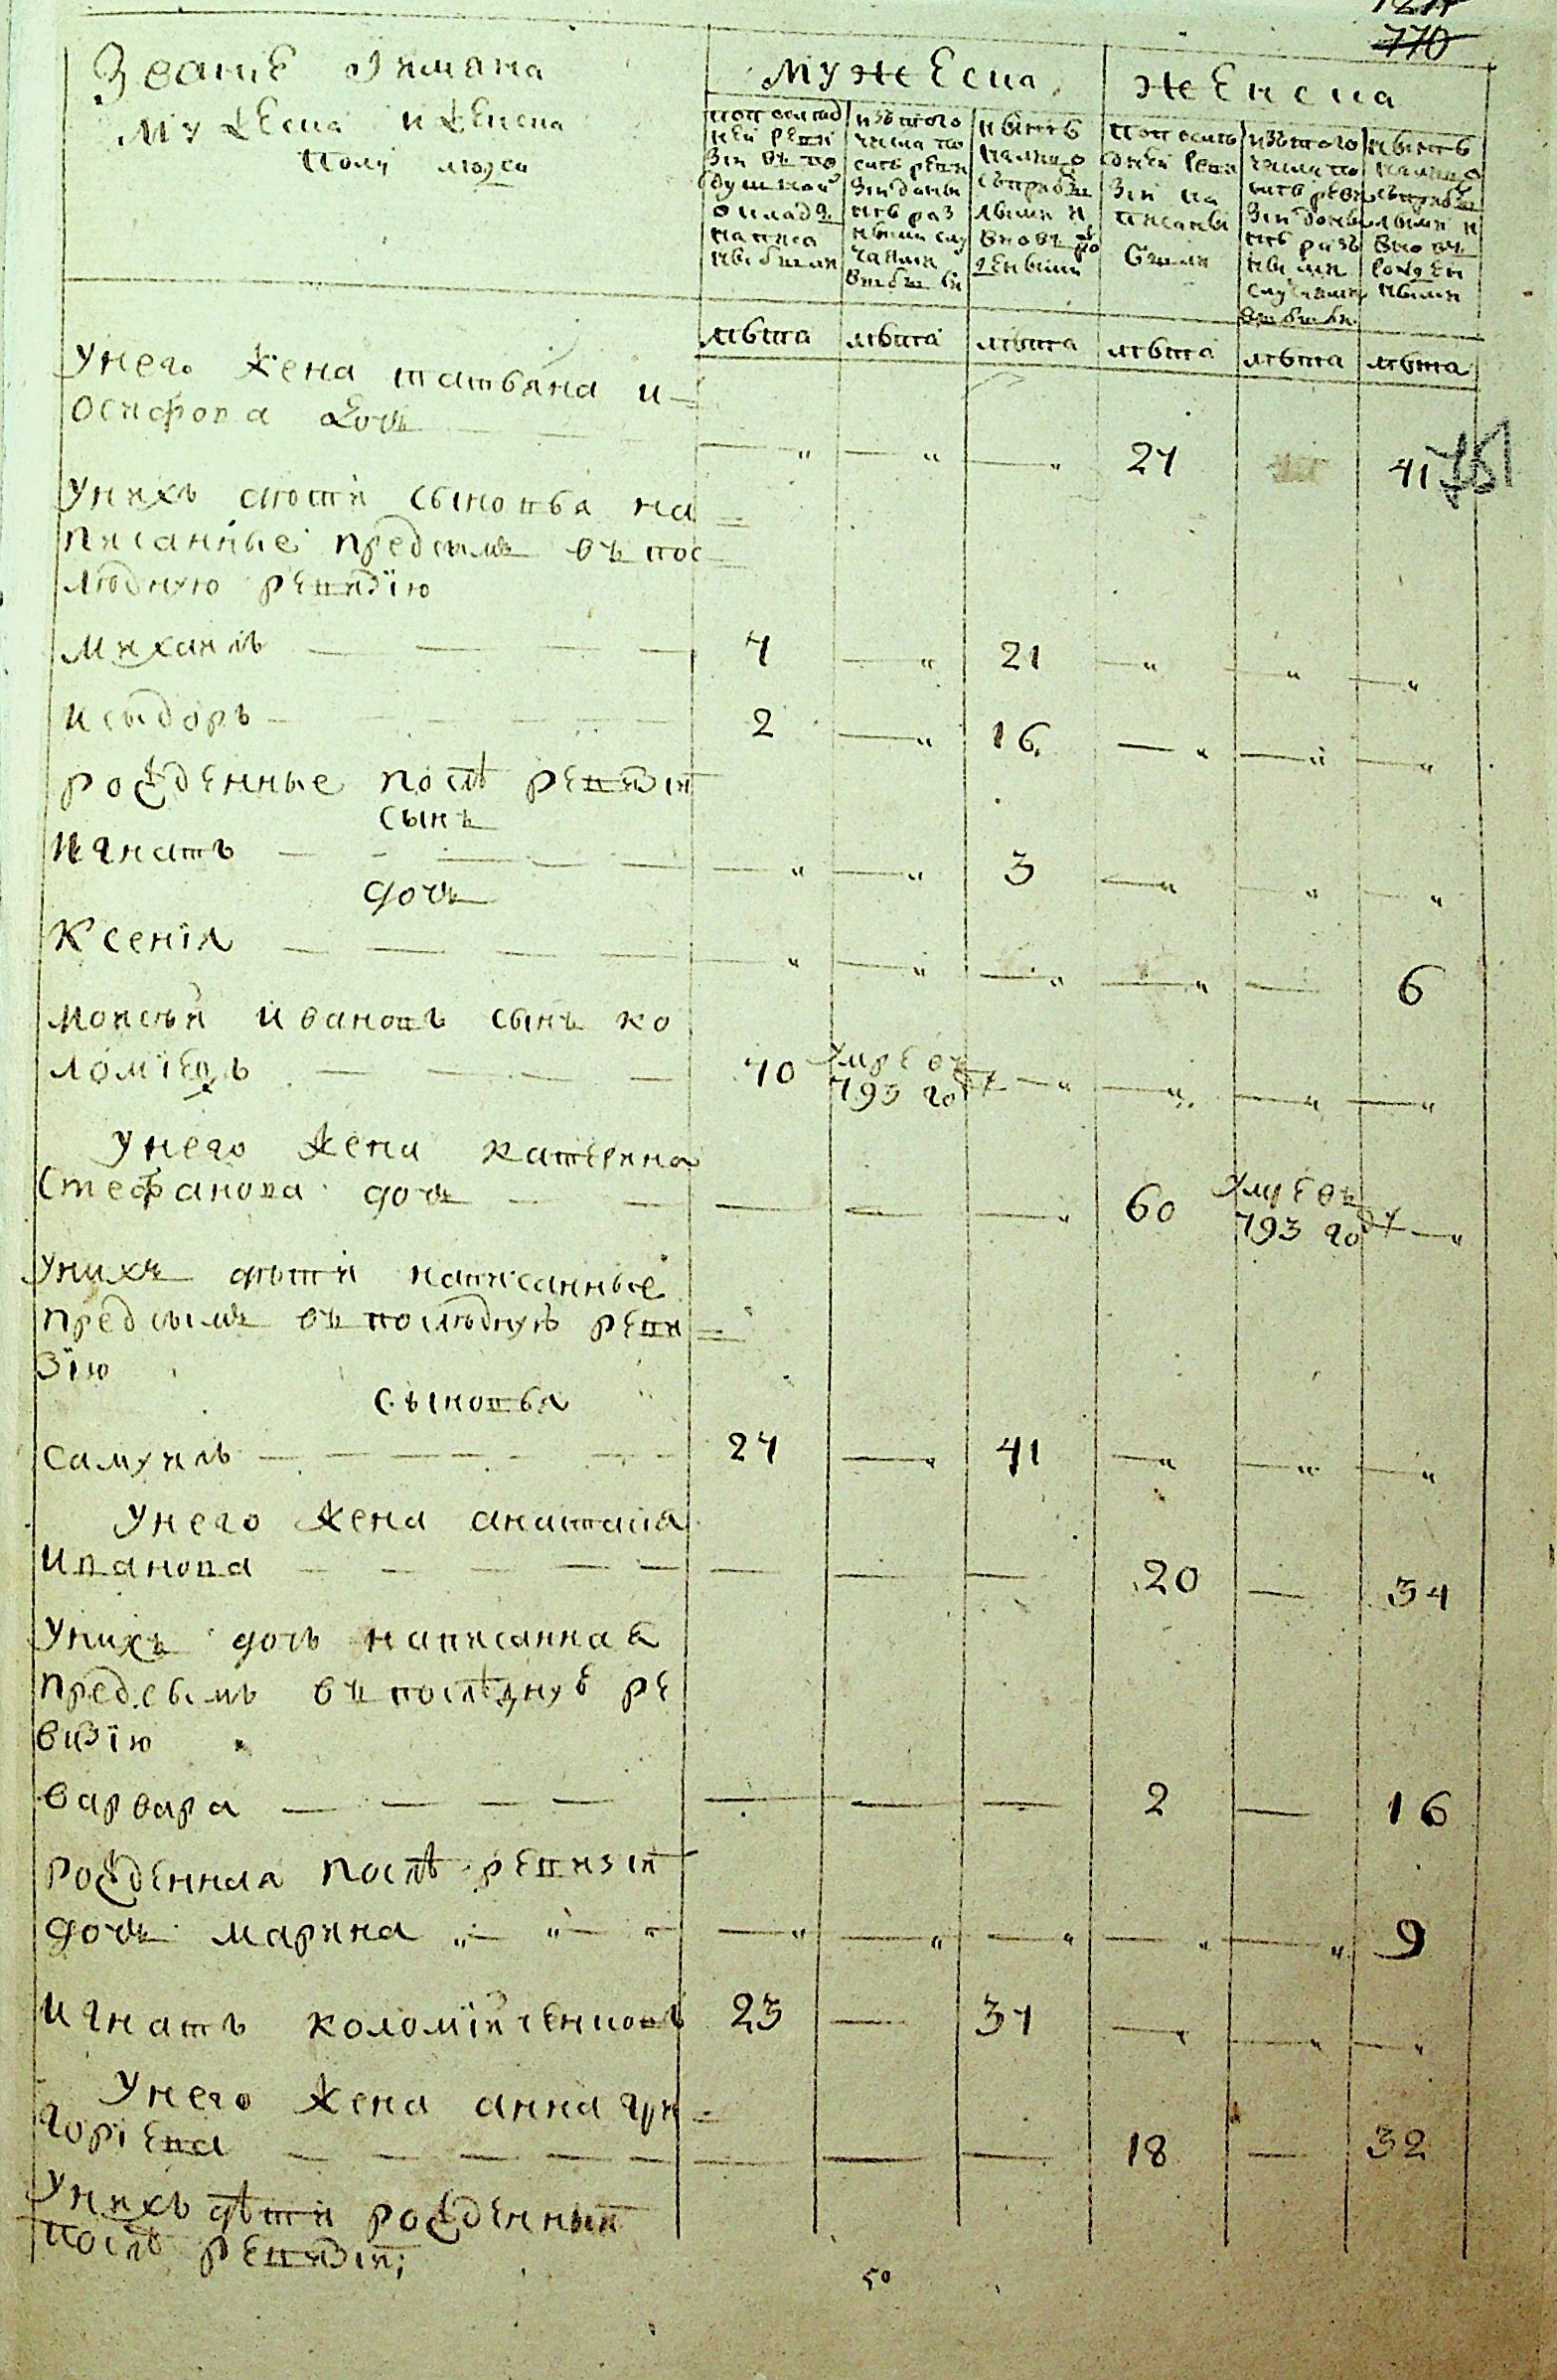 770
Звание Имяна
мужеска и женска
полу люди
мужеска
женска
по последней ревизии в подушной оклад написаны были
из того числа по сить ревизии доныне разными случаями выбыли
ныне налицо с прибылыми и вновь рожденными
по последней ревизии написаны были
из того числа по сить ревизии доныне разными случаями выбыли
ныне налицо с прибылыми и вновь рожденными
лѣта лѣта лѣта лѣта лѣта лѣта
у него жена татьяна и-
осифова дочь 24 41
751
у нихъ дѣти сыновья на
писанные предсимъ въ пос
лѣдную ревизїю
михаилъ 7 21
исыдоръ 2 16
рожденные послѣ ревизіи
сынъ
игнатъ 3
дочь
Ксенїя 6
моисѣй ивановъ сынъ ко
ломїецъ 70 умре въ 793 году
у него жена катерина
стефанова дочь 60 умре въ 793 году
у нихъ дѣти написанные
предсимъ въ послѣдную реви
зїю
сыновья
самуилъ 24 41
у него жена анастасіа
иванова 20 34
у нихъ дочь написанная
предсимъ въ послѣднуе ре
визїю
варвара 2 16
рожденная послѣ ревизіи
дочь марина 9
игнатъ коломїйченковъ 23 37
у него жена анна гри
горїева 18 32
у нихъ дѣти рожденныи
послѣ ревизіи;
50